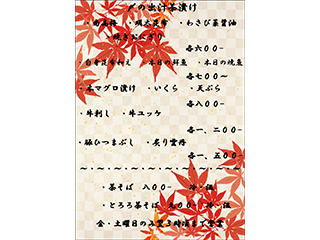 〆の出汁茶漬け
・南高梅 ・明太昆布 ・わさび葉醤油
・焼きおにぎり
各六〇〇-
・白身昆布和え ・本日の鮮魚 ・本日の焼魚
各七〇〇~
・本マグロ漬け ・いくら ・天ぷら
各八〇〇-
・牛刺し ・牛ユッケ
各一、二〇〇-
・豚ひつまぶし ・炙り雲丹
各一、五〇〇-
~・~・~・~・~・~・~・~・~・~
・茶そば 八〇〇- 冷・温
・とろろ茶そば 九〇〇- 冷・温
金・土曜日のみ翌3時頃まで営業